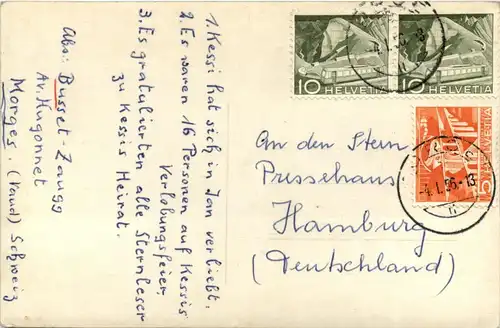 Abs: Busset-Zaugg
Av. Hugonnet
Morges. (Vaud) Schweiz
1. Kessi hat sich in Jan verliebt.
2. Es waren 16 Personen auf Kessis
Verlobungsfeier.
3. Es gratulierten alle Sternleser
zu Kessis Heirat.
An den Stern
Pressehaus
Hamburg
(Deutschland)
10 HELVETIA
10 HELVETIA
5 HELVETIA
-4.I.56-13